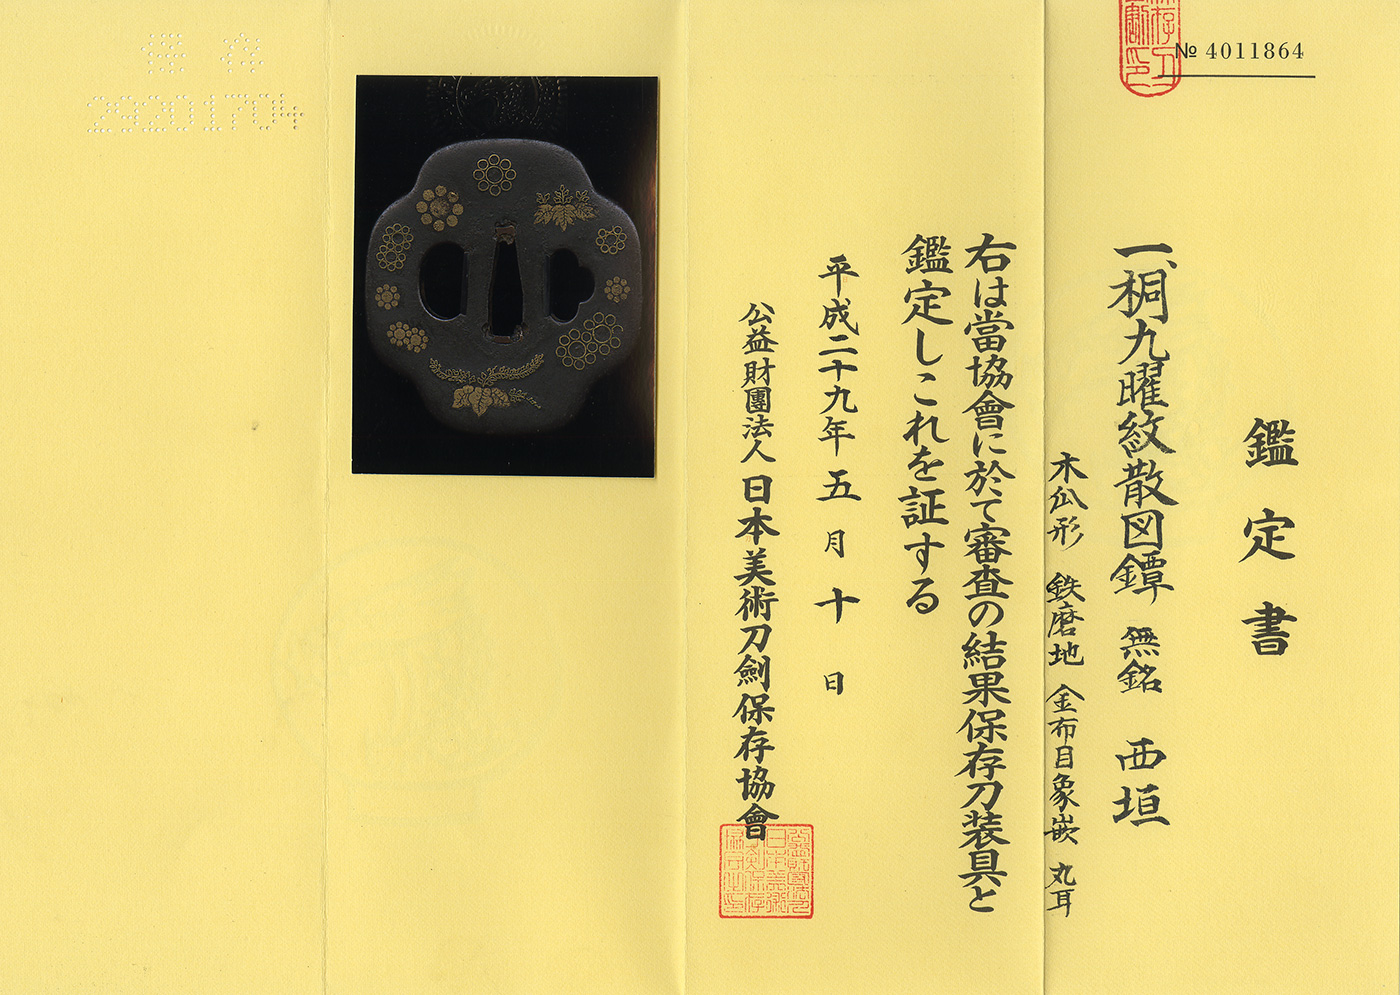 № 4011864
鑑定書
一、桐九曜紋散図鐔 無銘 西垣
木瓜形 鉄磨地 金布目象嵌 丸耳
右は當協會に於て審査の結果保存刀装具と
鑑定しこれを証する
平成二十九年五月十日
公益財團法人日本美術刀劍保存協會
保存
29201704